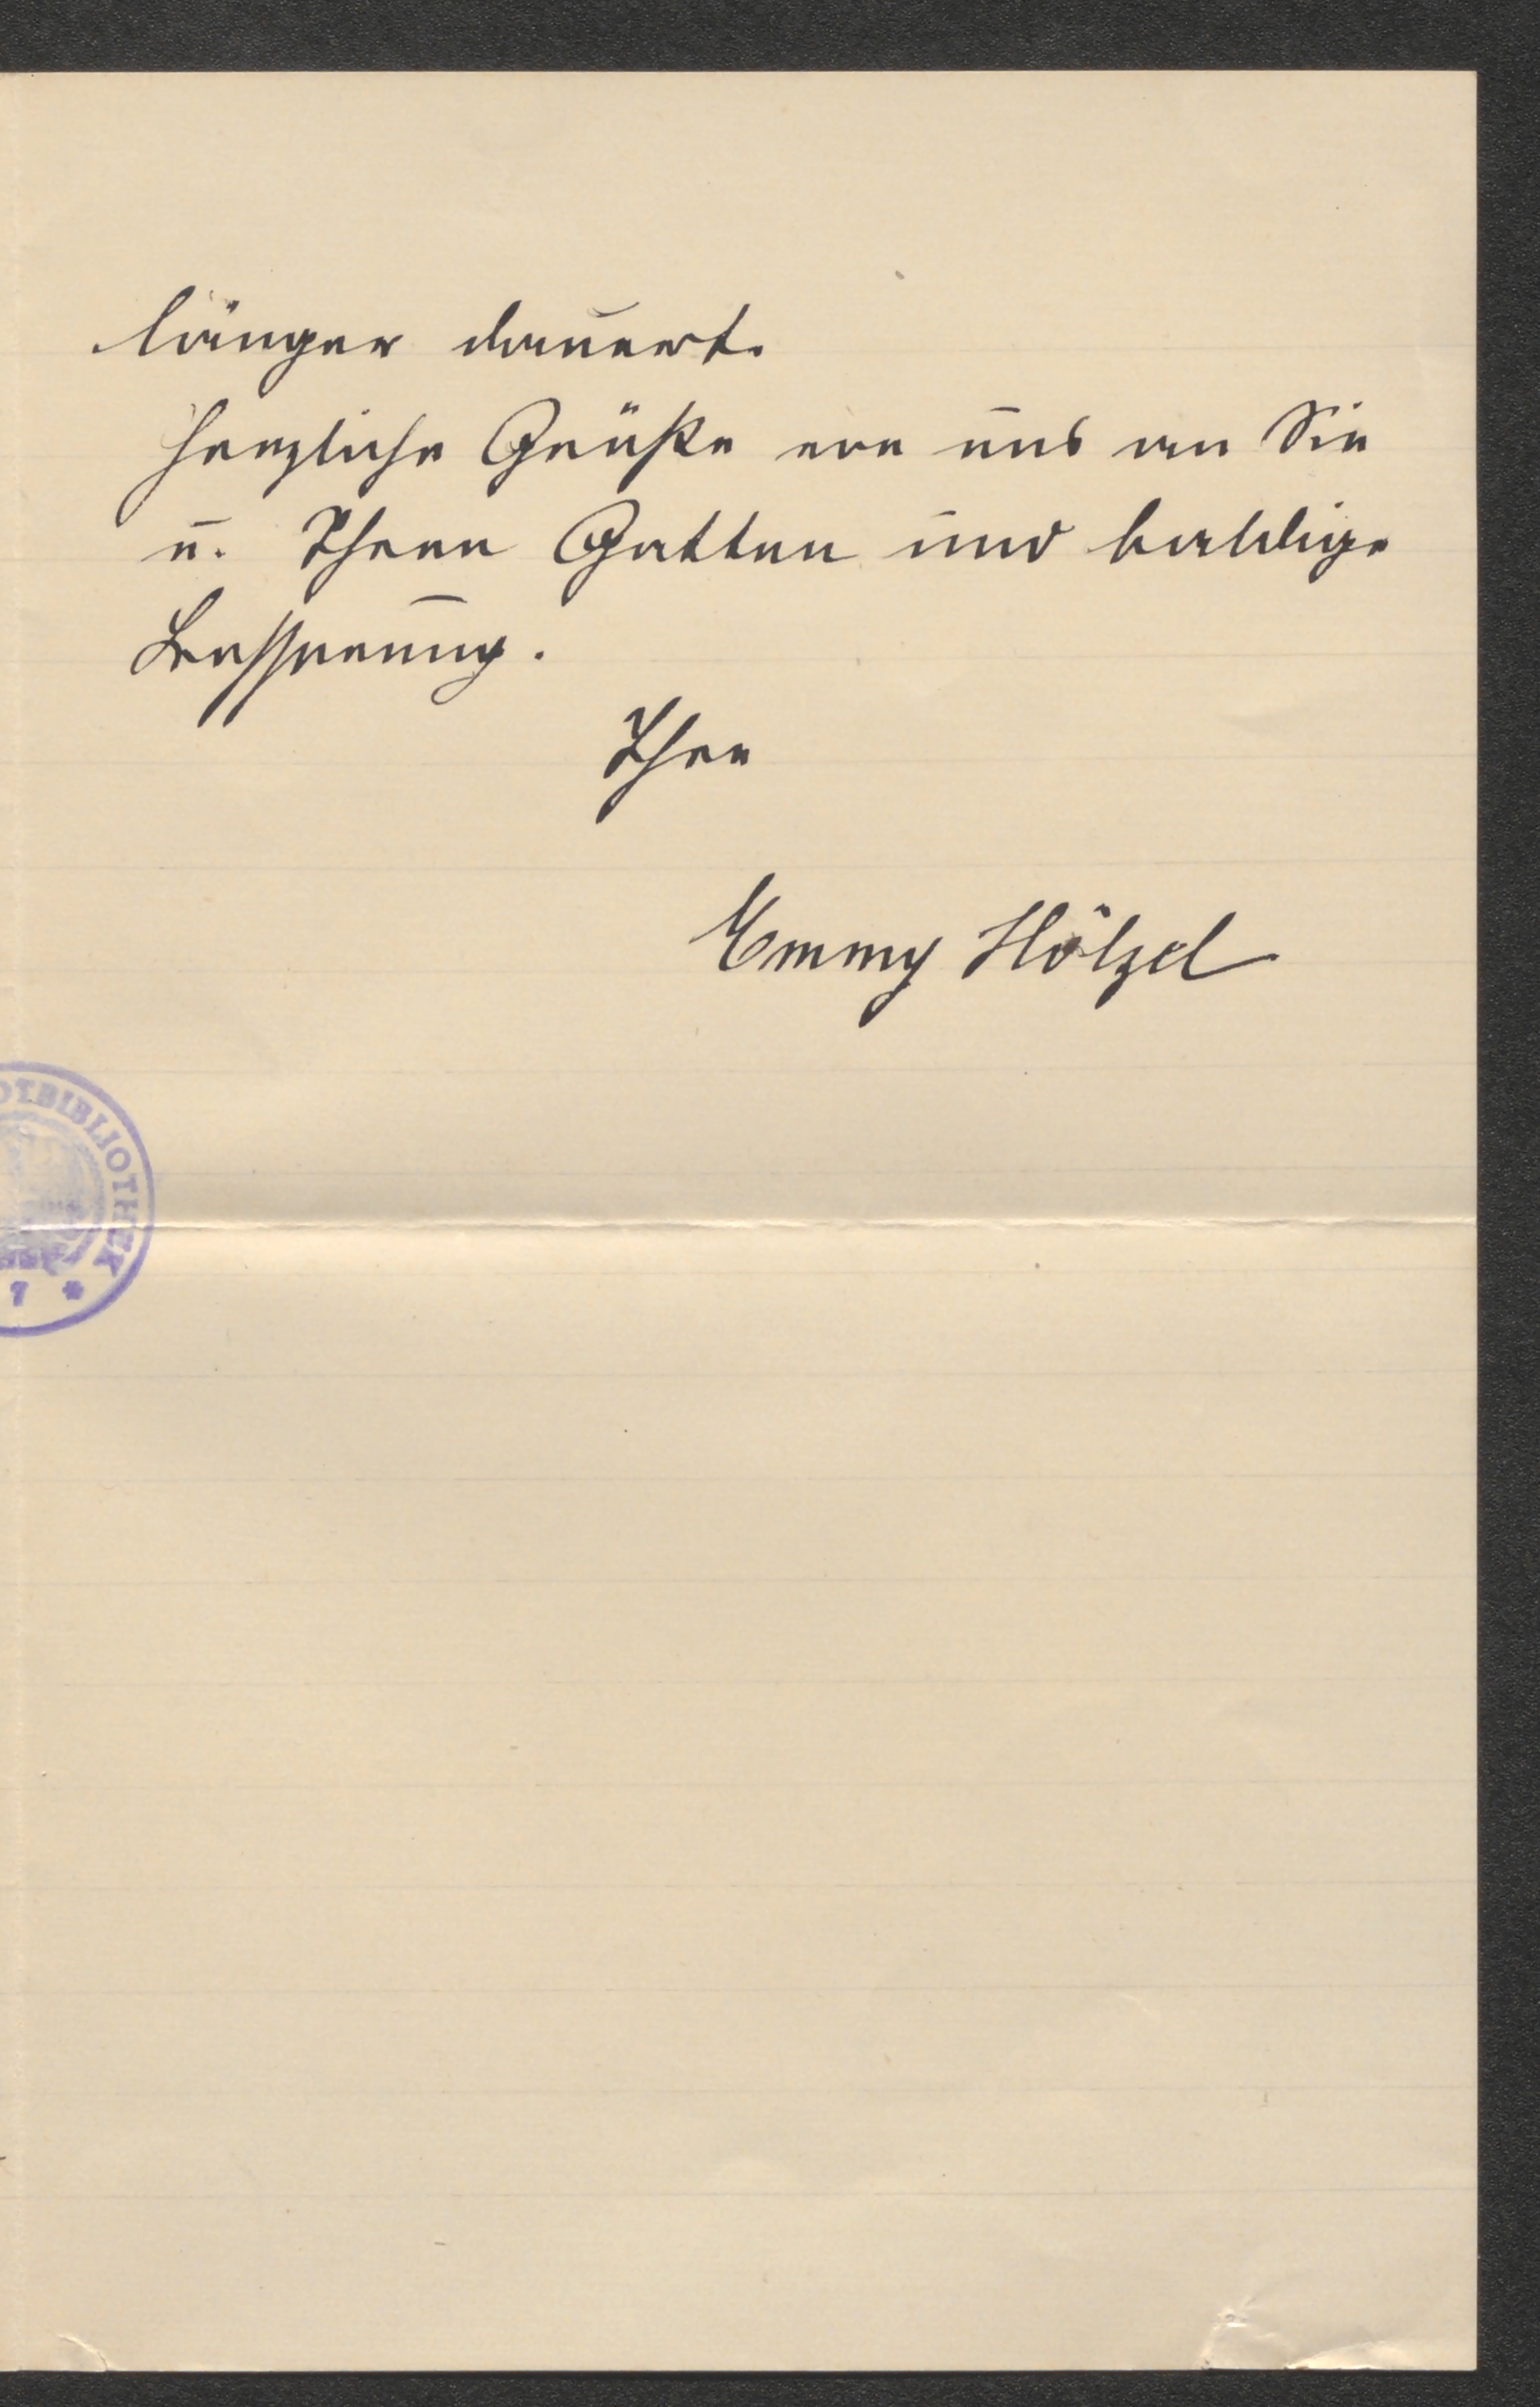 länger dauert.
Herzliche Grüße von uns an Sie
u. Ihren Gatten und baldige
Besserung.
Ihre
Emmy Hölzel
DTBIBLIOTHEK
7 *